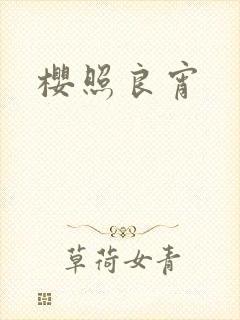 櫻照良宵
草荷女青